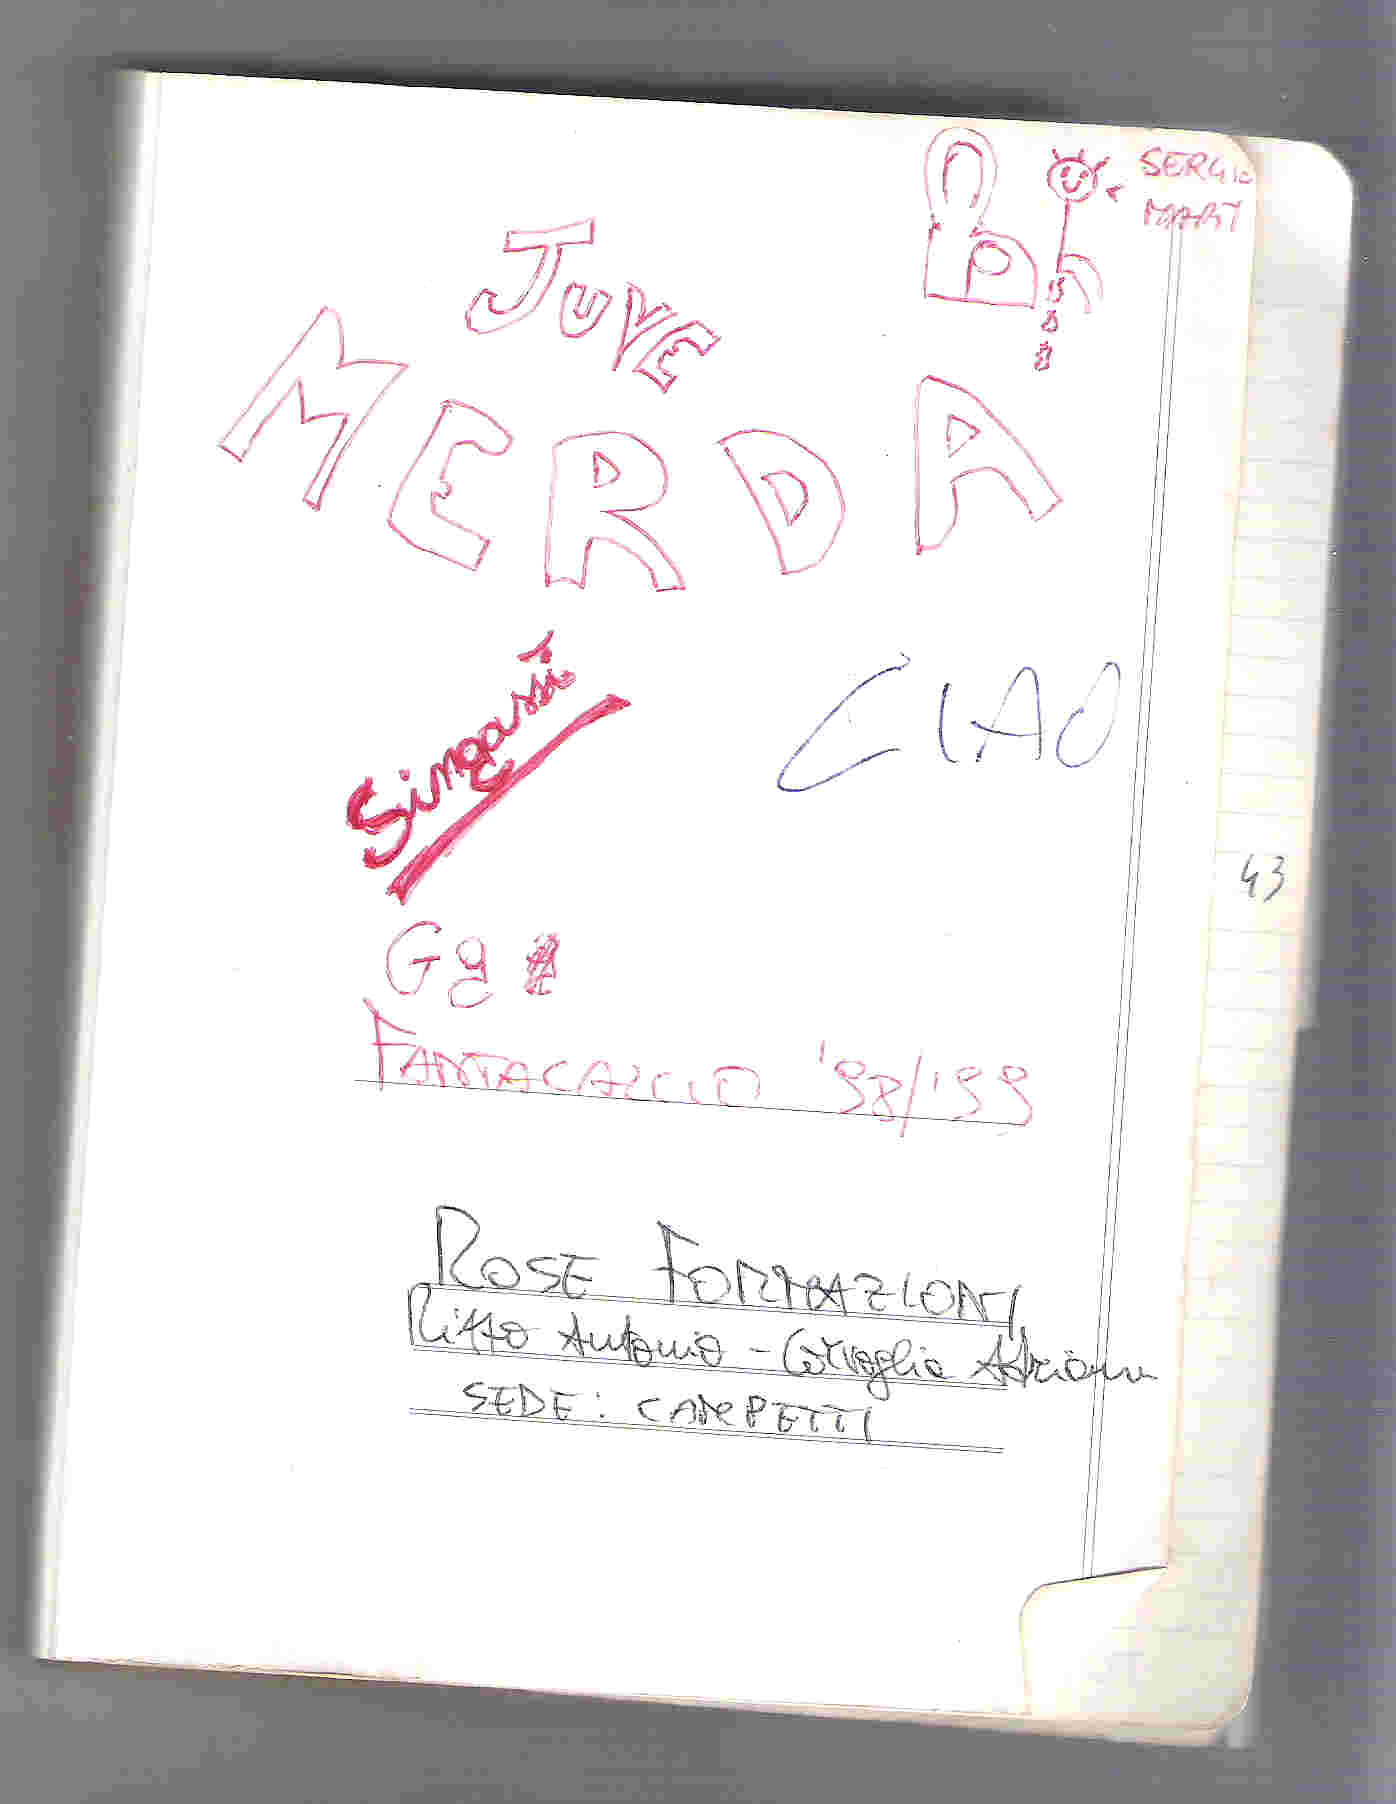 SERGIO
MART
JUVE
MERDA
CIAO
43
Gg
FANTACALCIO '98/'99
ROSE FORMAZIONI
Antonio - Corvaglia Adriano
SEDE: CAMPETTI